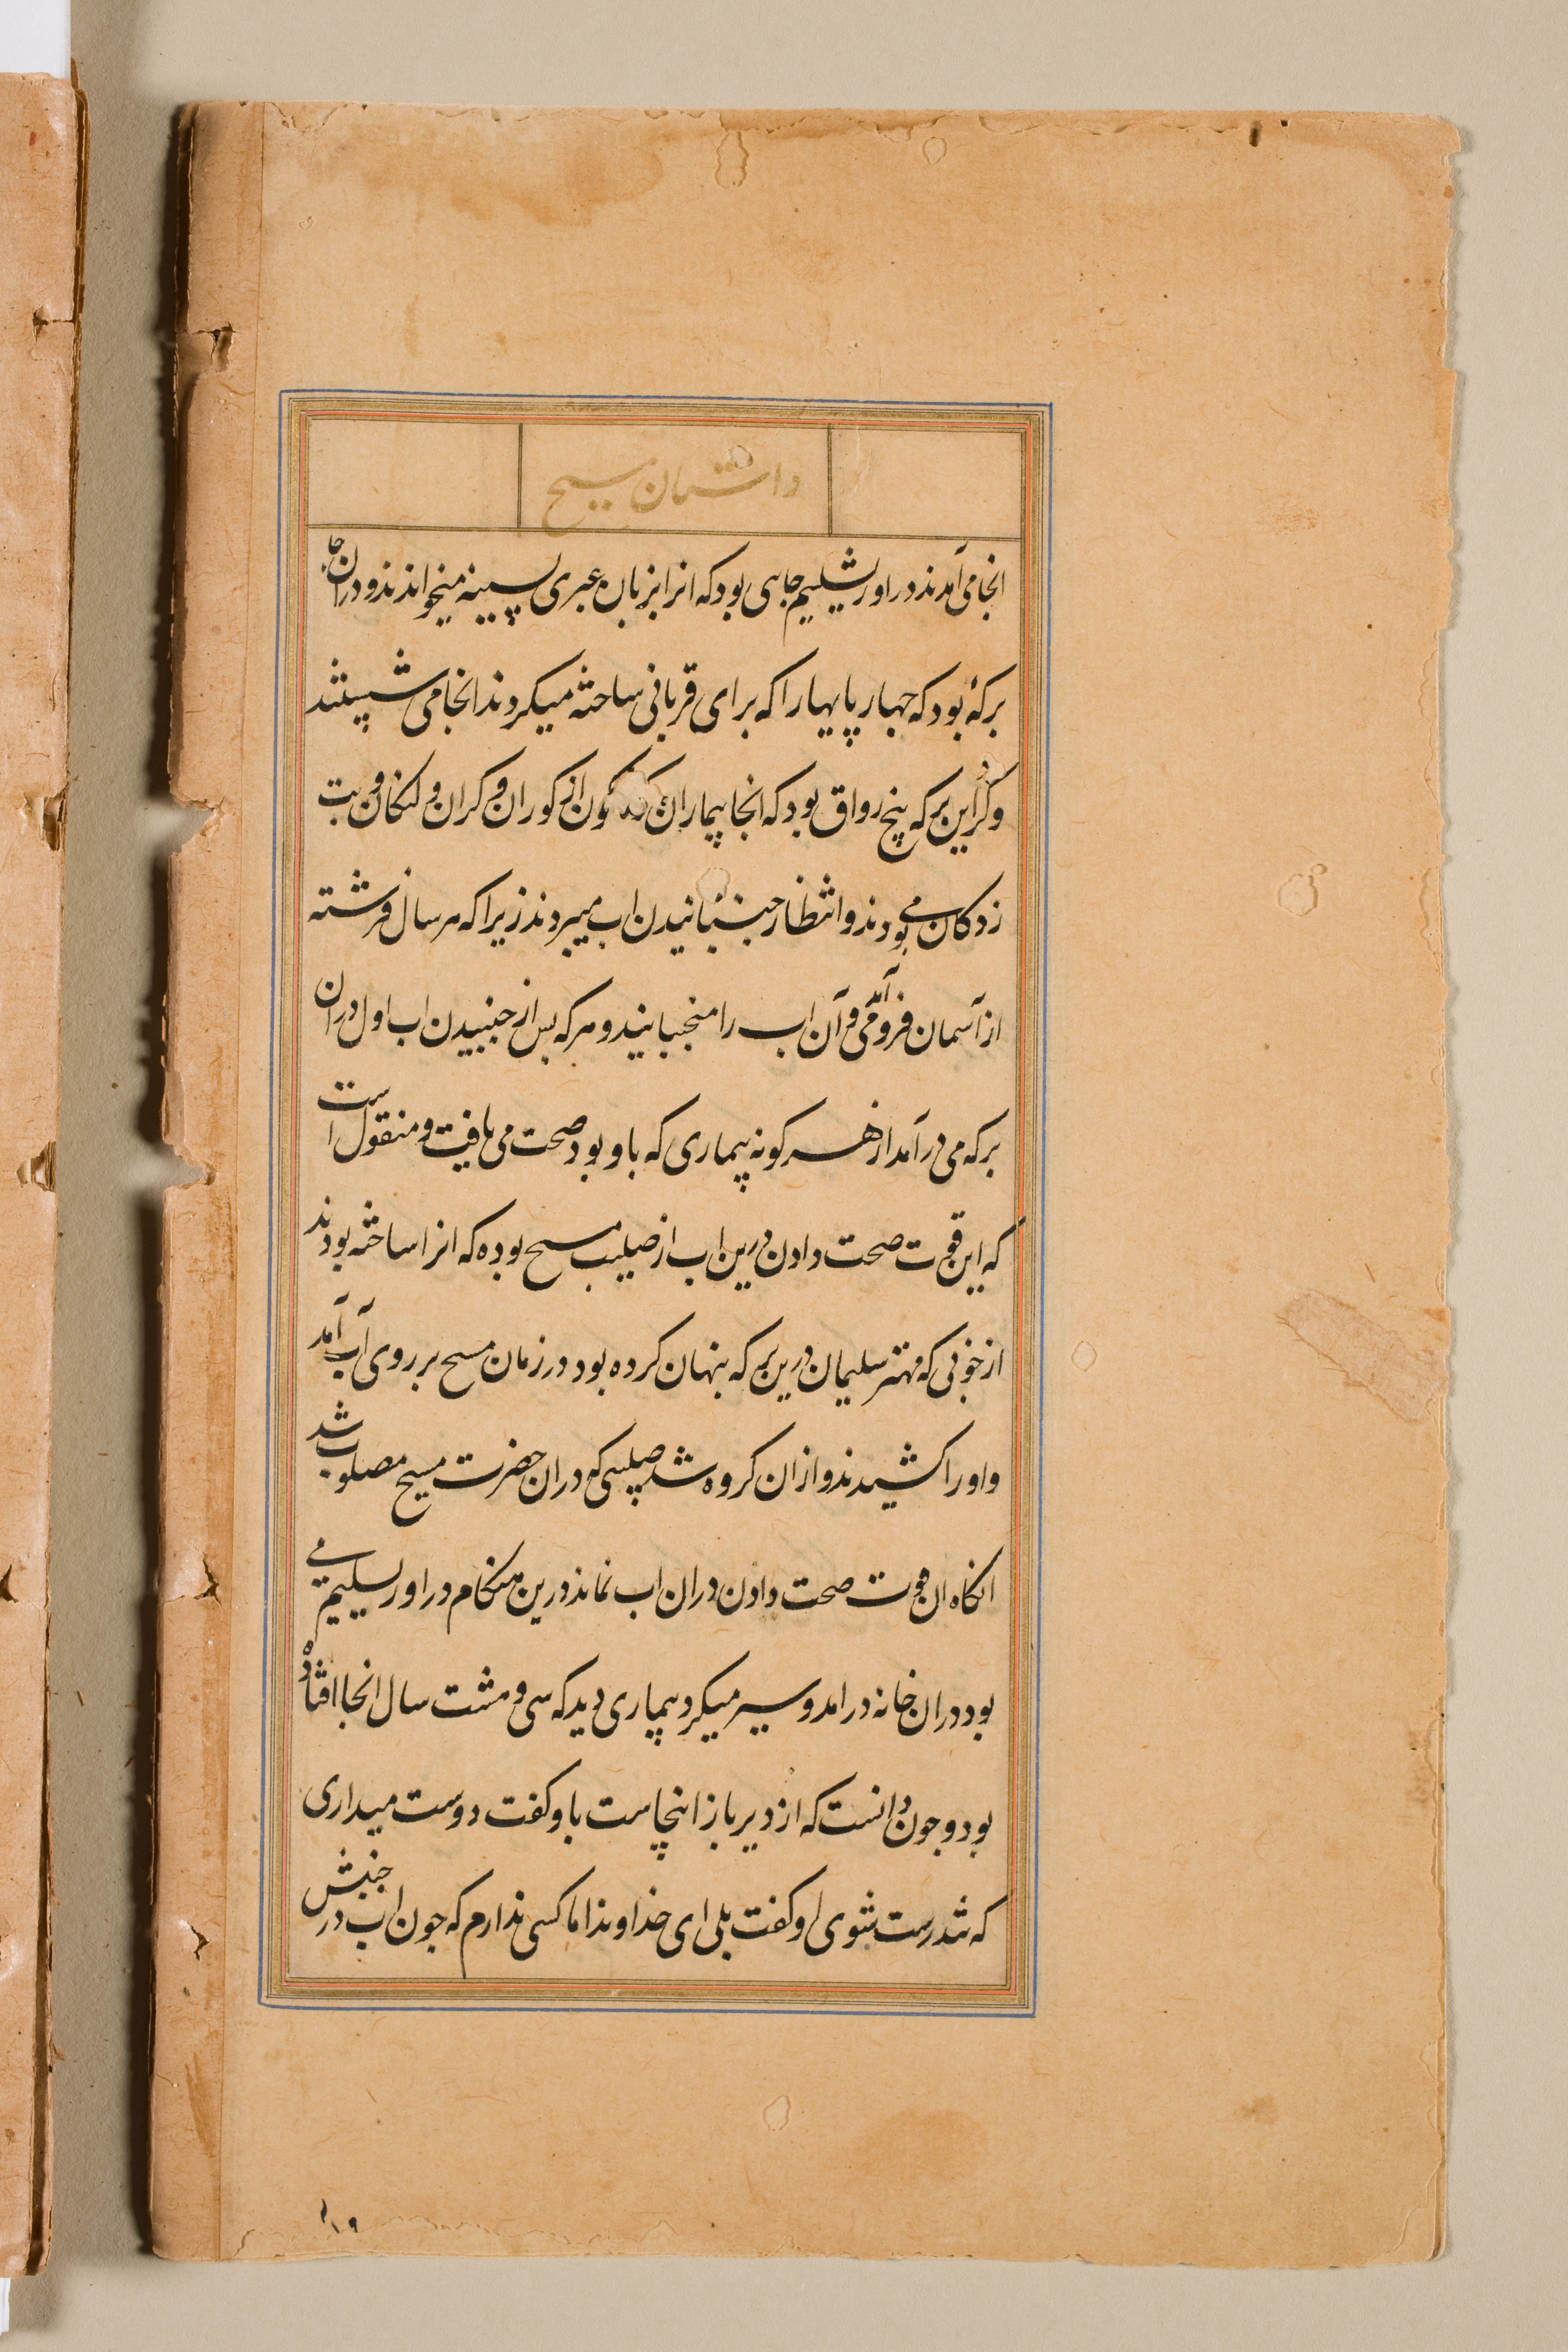 داستان مسیح
انجا می آمدند در اورشلیم جایی بود که انرا بزبان عبری پسینه میخواندند و دران جا
برکهٔ بود که جهار پایها را که برای قربانی ساخته میکردند انجا می شستند
و کرد این برکه پنج رواق بود که انجا بیماران کوناکون از کوران و کران و لنکان و تب
زدکان می بودند و انتظار جنبانیدن اب میبردند زیرا که هر سال فرشته
از آسمان فرو می آمد و آن اب را میجنبانید و هر که پس از جنبیدن اب اول دران
برکه می در آمد از هر کونه بیماری که با و بود صحت می یافت و منقول است
که این قوت صحت دادن درین اب از صلیب مسیح بوده که انرا ساخته بودند
از خوبی که مهتر سلیمان درین برکه پنهان کرده بود در زمان مسیح بر روی آب آمد
و اورا کشیدند و ازان کروه شد صلیبی که دران حضرت مسیح مصلوب شد
انکاه ان قوت صحت دادن دران اب نماند درین هنکام در اورسلیم می
بود دران خانه در امد و سیر میکرد بیماری دید که سی و هشت سال انجا افتاده
بود و جون دانست که از دیر باز اینجاست با و کفت دوست میداری
که تندرست شوی او کفت بلی ای خداوند اما کسی ندارم که جون اب در جنبش